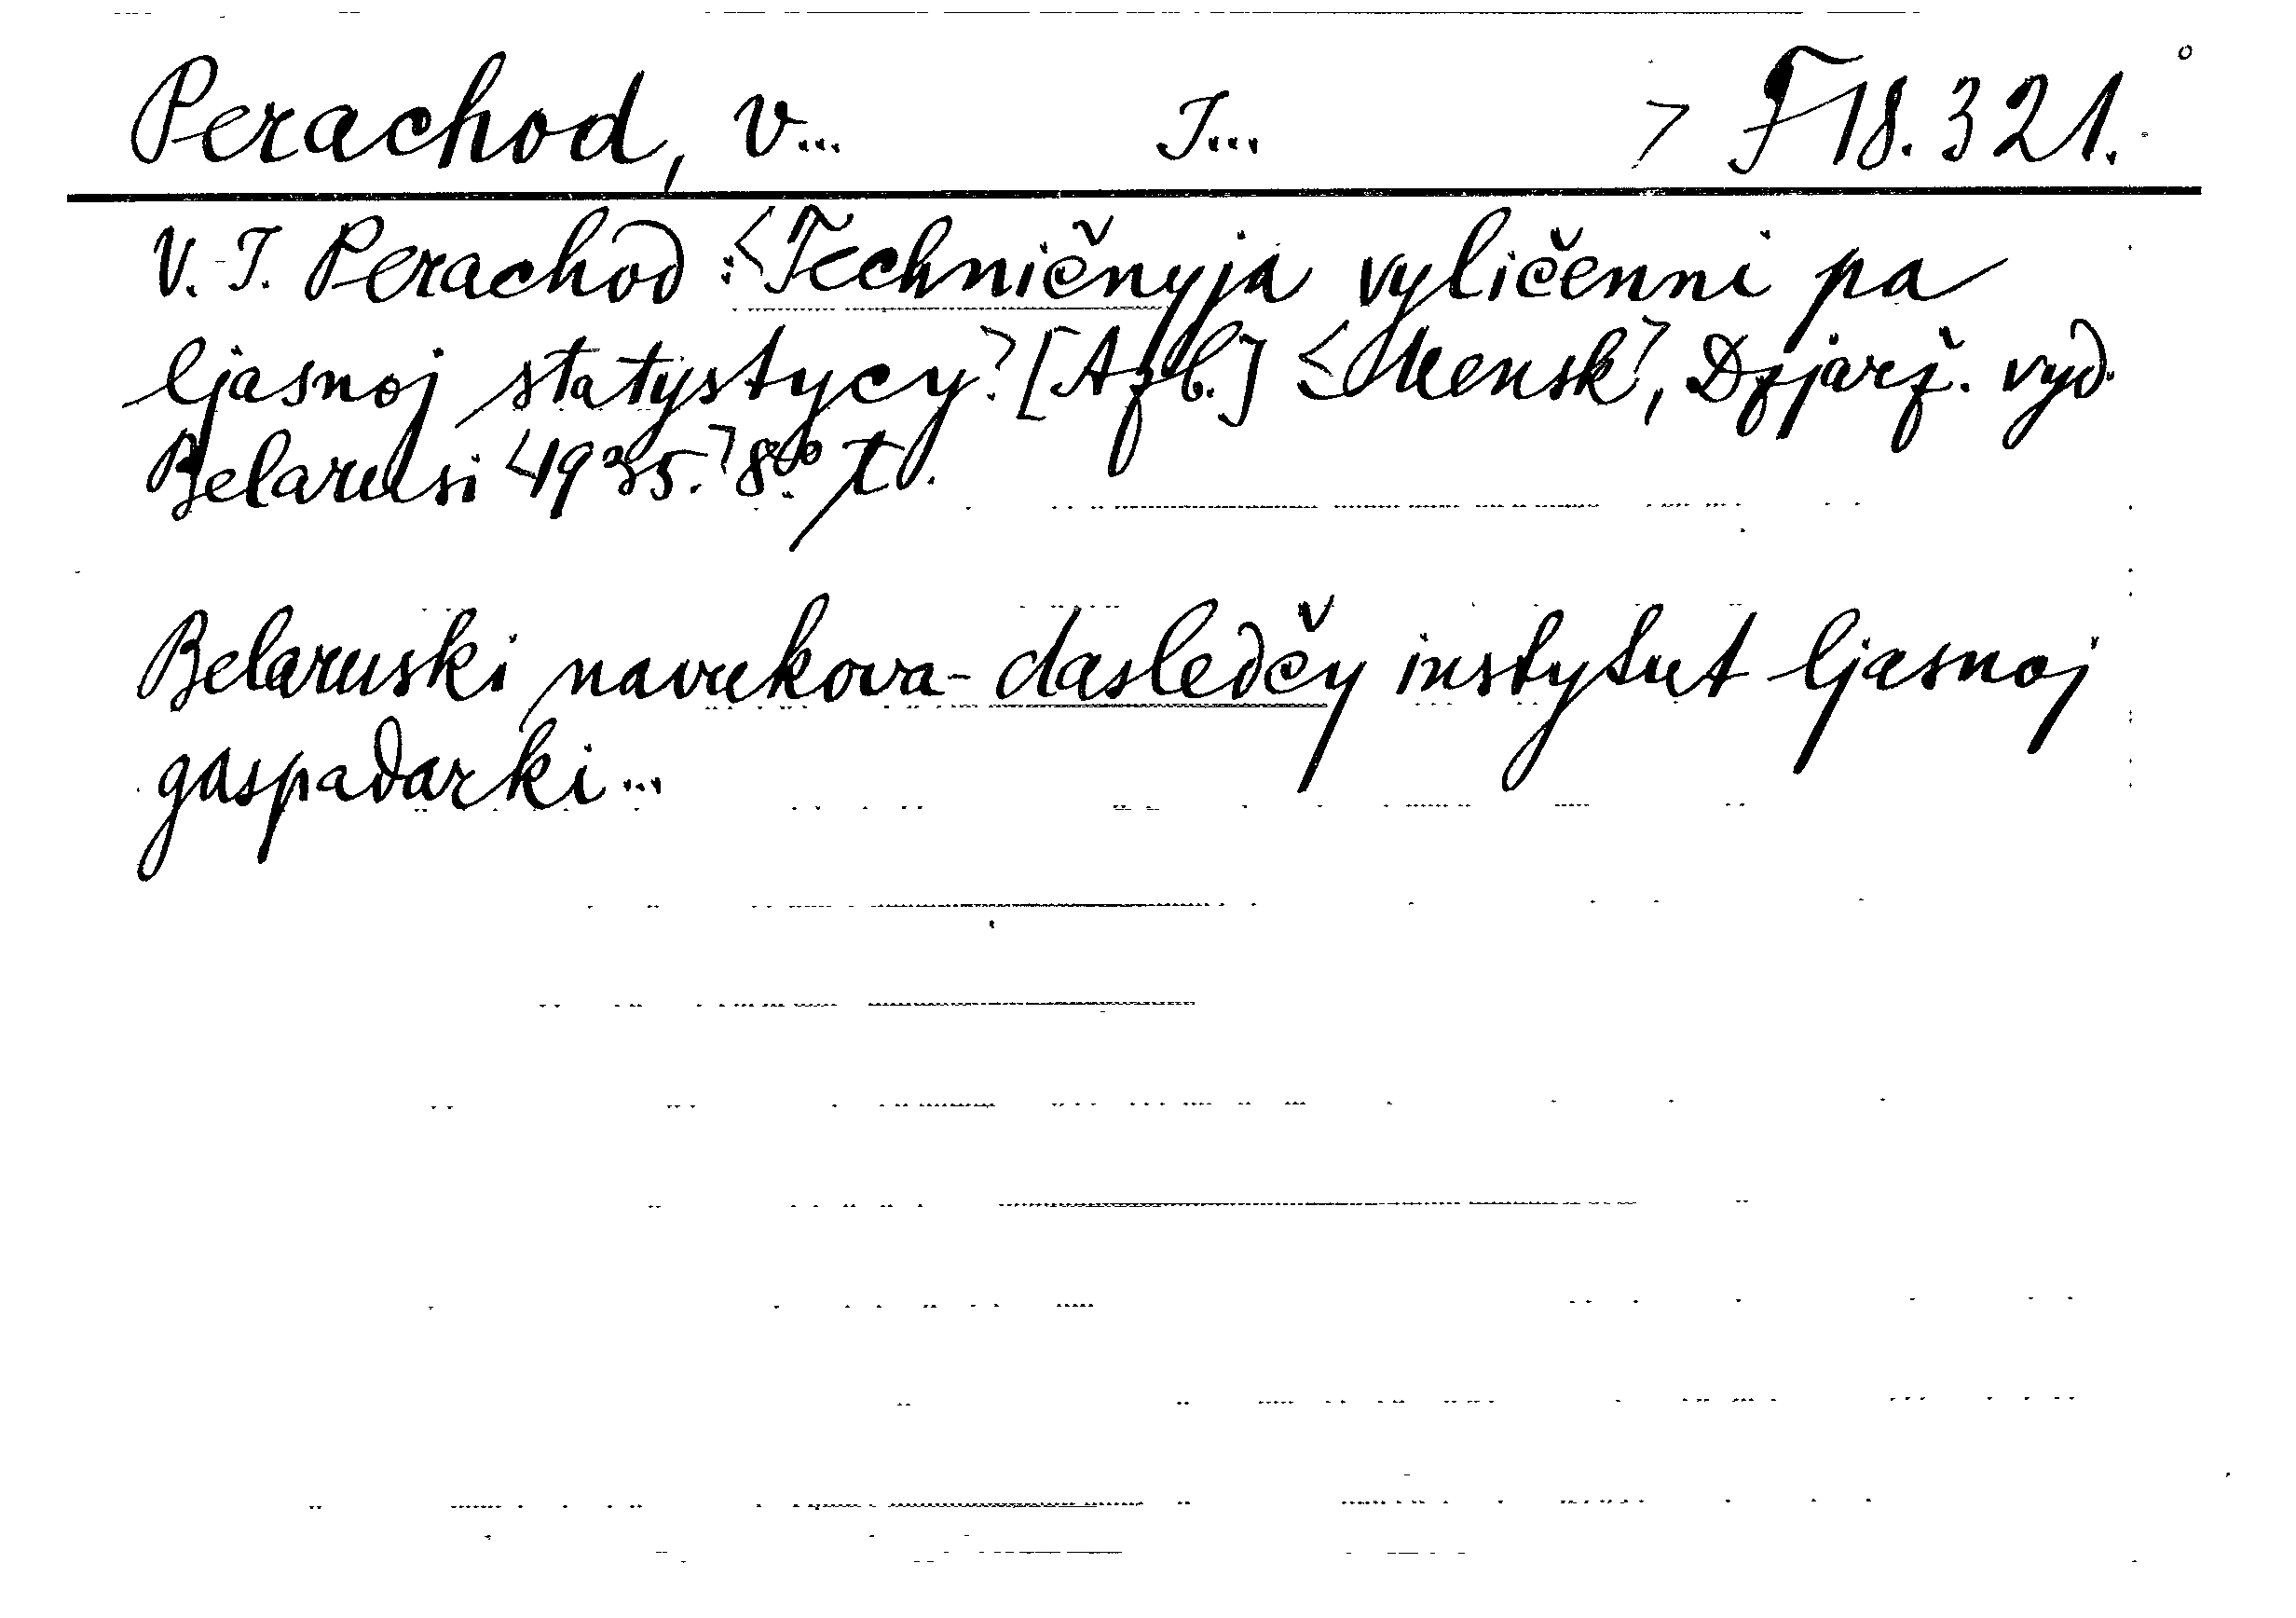 Perachod, V... I... > F 18.321.
V. I. Perachod: <Techničnyja vyličenni pa
ljasnoj statystycy> [Azb.] <Mensk>, Dzjarž. vyd.
Belarusi <1935.> 8°
Belaruski navukova-dasledčy instytut ljasnoj
gaspadarki...